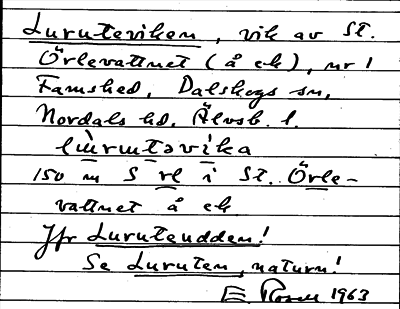 Luruteviken, vik av St.
Örlevattnet (å ek), nr 1
Famshed, Dalskogs sn,
Nordals hd. Älvsb. l.
lùrutəvika
150 m S rl i St. Örle-
vattnet å ek
Jfr Luruteudden!
Se Luruten, naturn!
E 1963